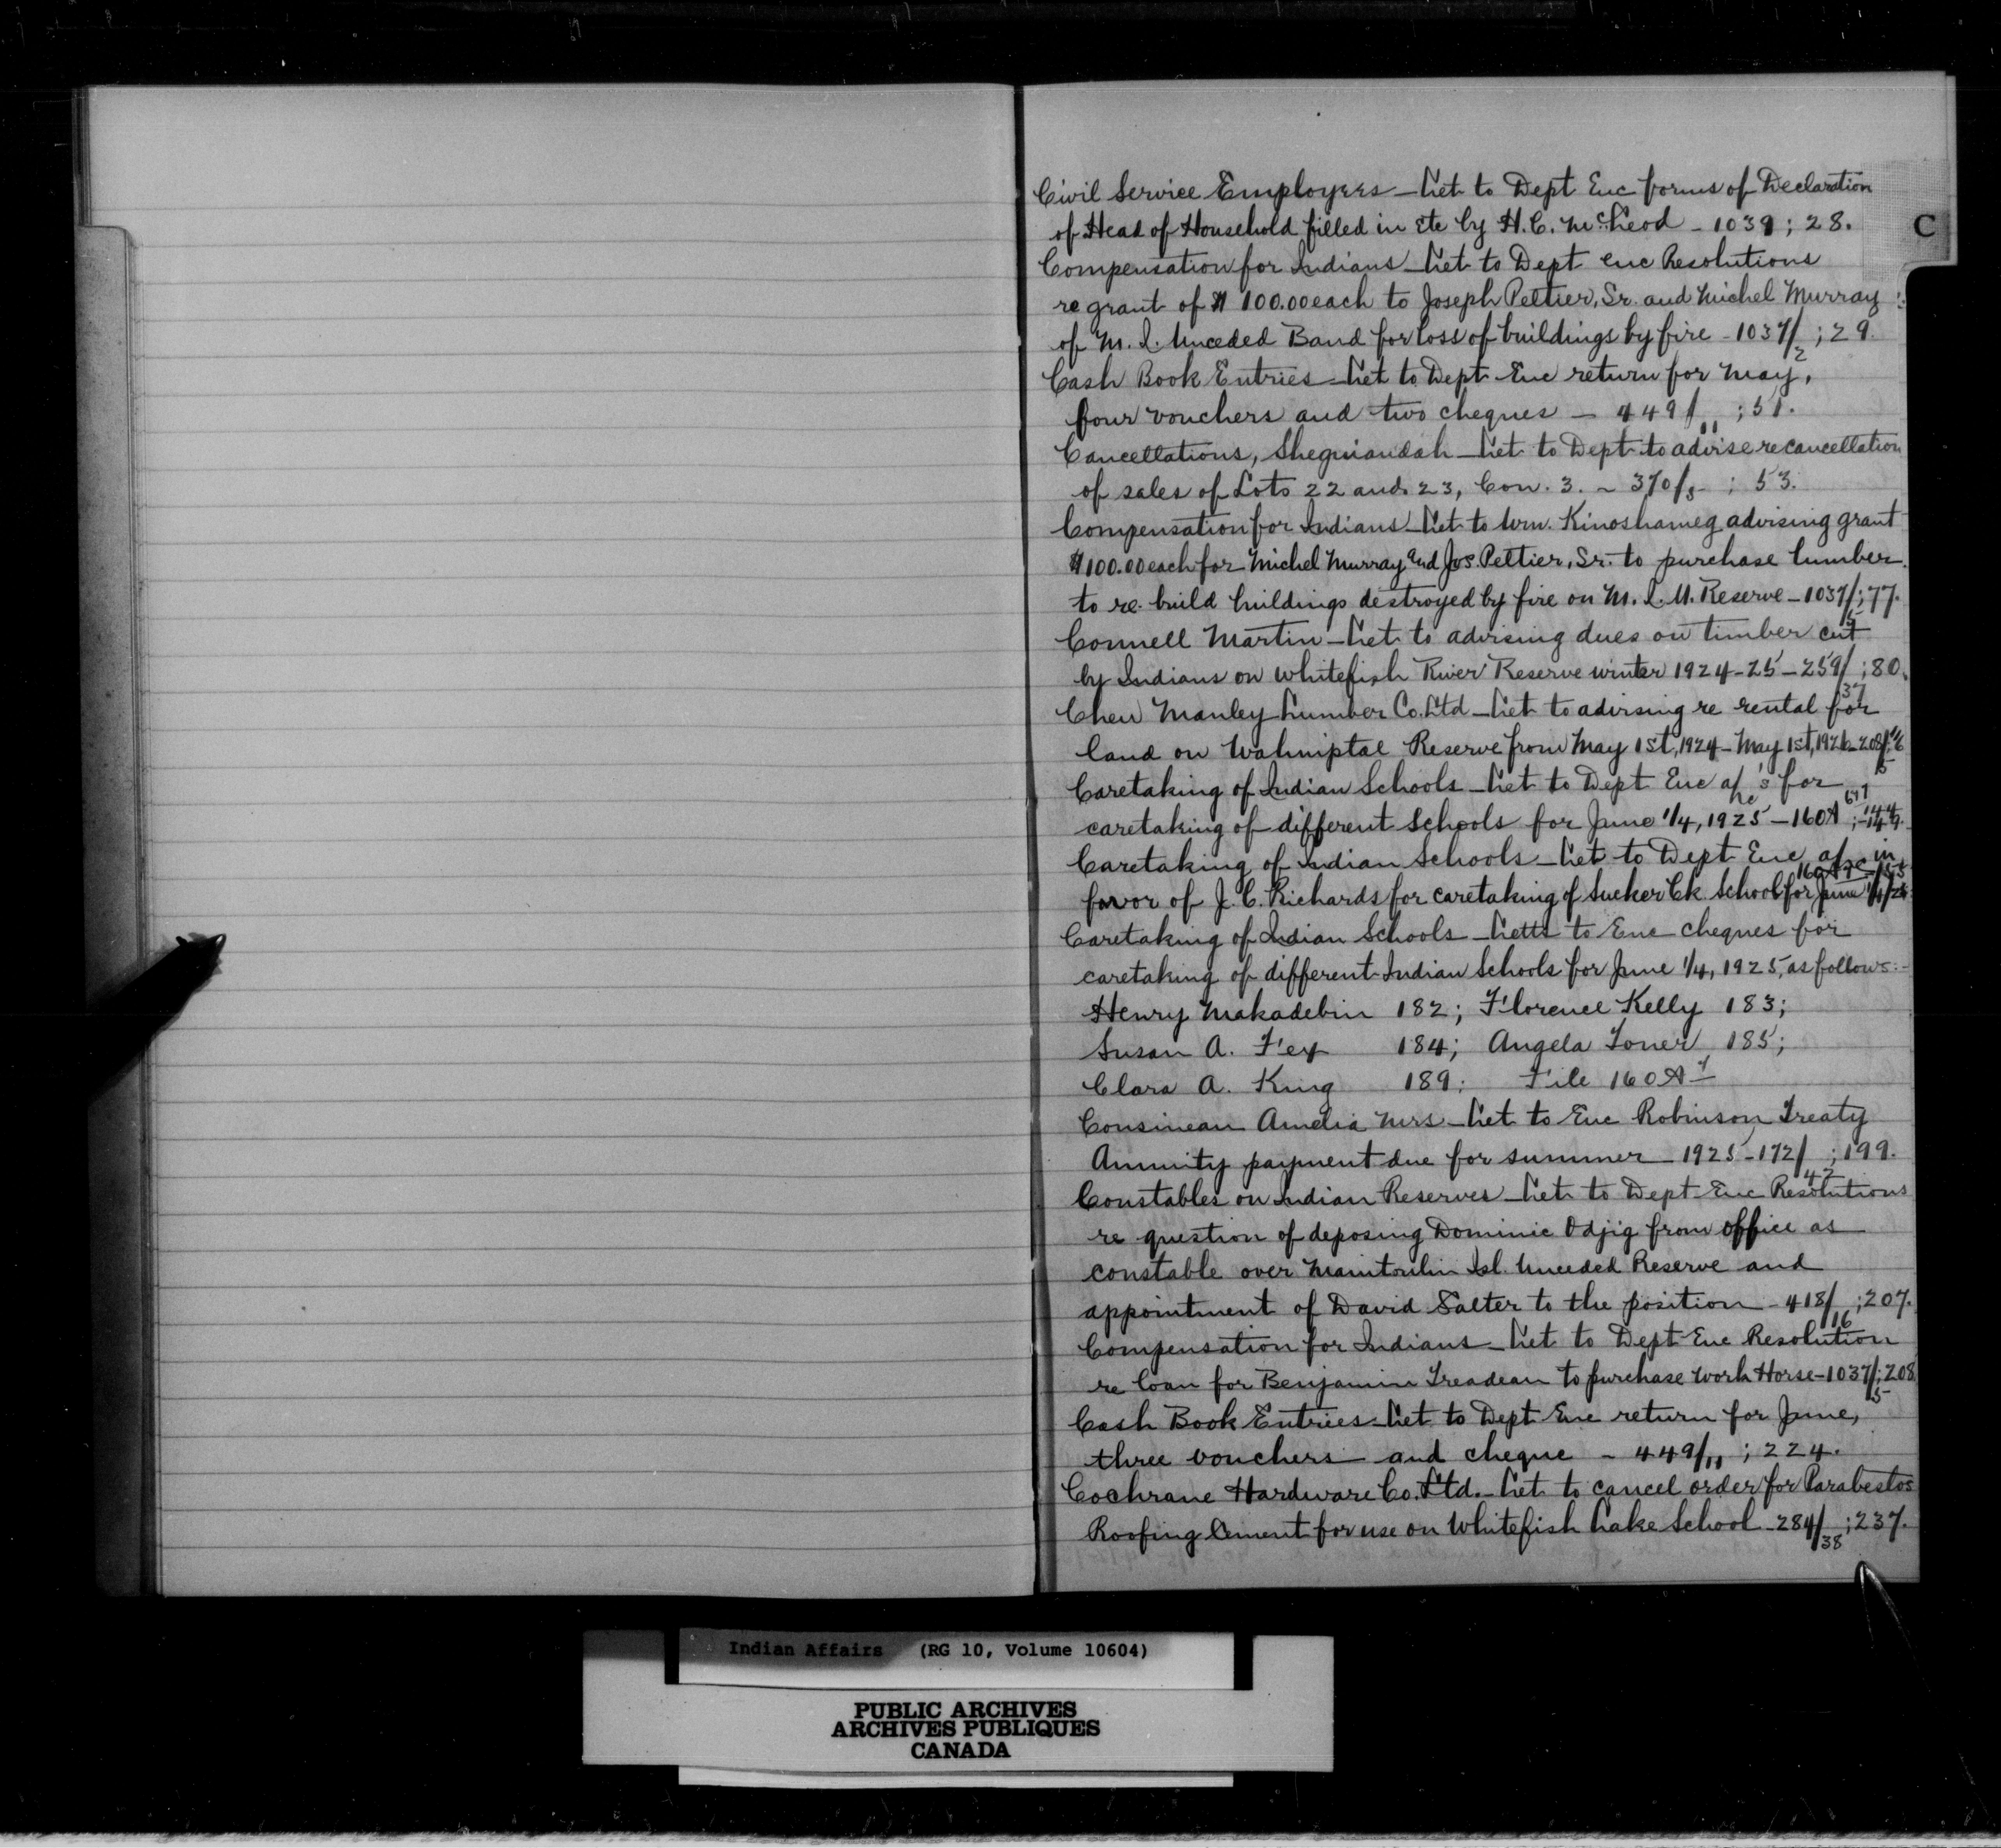 Civil Service Employees - Let to Dept Enc forms of Declaration
of Head of Household filled in Etc by H.C. McLeod - 1039 ; 28.
C
Compensation for Indians - Let to Dept enc Resolutions
re grant of $ 100.00 each to Joseph Peltier, Sr. and Michel Murray
of M. I. Unceded Band for loss of buildings by fire - 1037/2 ; 29.
Cash Book Entries - Let to Dept Enc return for May,
four vouchers and two cheques - 449/11 ; 51.
Cancellations, Sheguiandah - Let to Dept to advise re cancellation
of sales of Lots 22 and 23, Con. 3. - 370/5 ; 53.
Compensation for Indians - Let to Wm. Kinoshameg advising grant
$100.00 each for Michel Murray and Jos. Peltier, Sr. to purchase lumber
to re-build buildings destroyed by fire on M. I. U. Reserve - 1037/5 ; 77.
Connell Martin - Let to advising dues on timber cut
by Indians on Whitefish River Reserve winter 1924-25 - 259/37 ; 80.
Chew Manley Lumber Co. Ltd - Let to advising re rental for
land on Wahniptae Reserve from May 1st, 1924 - May 1st, 192
Caretaking of Indian Schools - Let to Dept Enc a/c's for
caretaking of different Schools for June 1/4, 1925 - 160A
Caretaking of Indian Schools - Let to Dept Enc a/c in
favor of J. C. Richards for caretaking of Sucker Ck. School for June 1/4/25
Caretaking of Indian Schools - Letts to Enc cheques for
caretaking of different Indian Schools for June 1/4, 1925, as follows:-
Henry Makadebin 182; Florence Kelly 183;
Susan A. Fex 184; Angela Toner 185;
Clara A. King 189; File 160A
Cousineau Amelia Mrs - Let to Enc Robinson Treaty
Annuity payment due for summer - 1925 - 172/42 ; 199.
Constables on Indian Reserves - Let to Dept Enc Resolutions
re question of deposing Dominic Odjig from office as
constable over Manitoulin Isl. Unceded Reserve and
appointment of David Salter to the position - 418/16 ; 207.
Compensation for Indians - Let to Dept Enc Resolution
re loan for Benjamin Treadean to purchase Work Horse - 1037/5 ; 208
Cash Book Entries - Let to Dept Enc return for June,
three vouchers and cheque - 449/11 ; 224.
Cochrane Hardware Co. Ltd. - Let to cancel order for Parabestos
Roofing Cement for use on Whitefish Lake School - 284/38 ; 237.
Indian Affairs (RG 10, Volume 10604)
PUBLIC ARCHIVES
ARCHIVES PUBLIQUES
CANADA